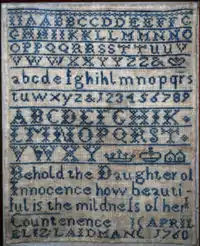 AABBCCDDEEFFG
GHHIIKKLLMMNNO
OPPQQRRSSTTUUV
VWWXXYYZZ&
abcdefghiklmnopqrs
tuwxyz&123456789
ABCDEFGHIK
LMNOPQRST
VWXYZ
Behold the Daughter of
Innocence how beauti-
ful is the mildness of her
Countenence APRIL
ELIZ LAIDMAN 1760